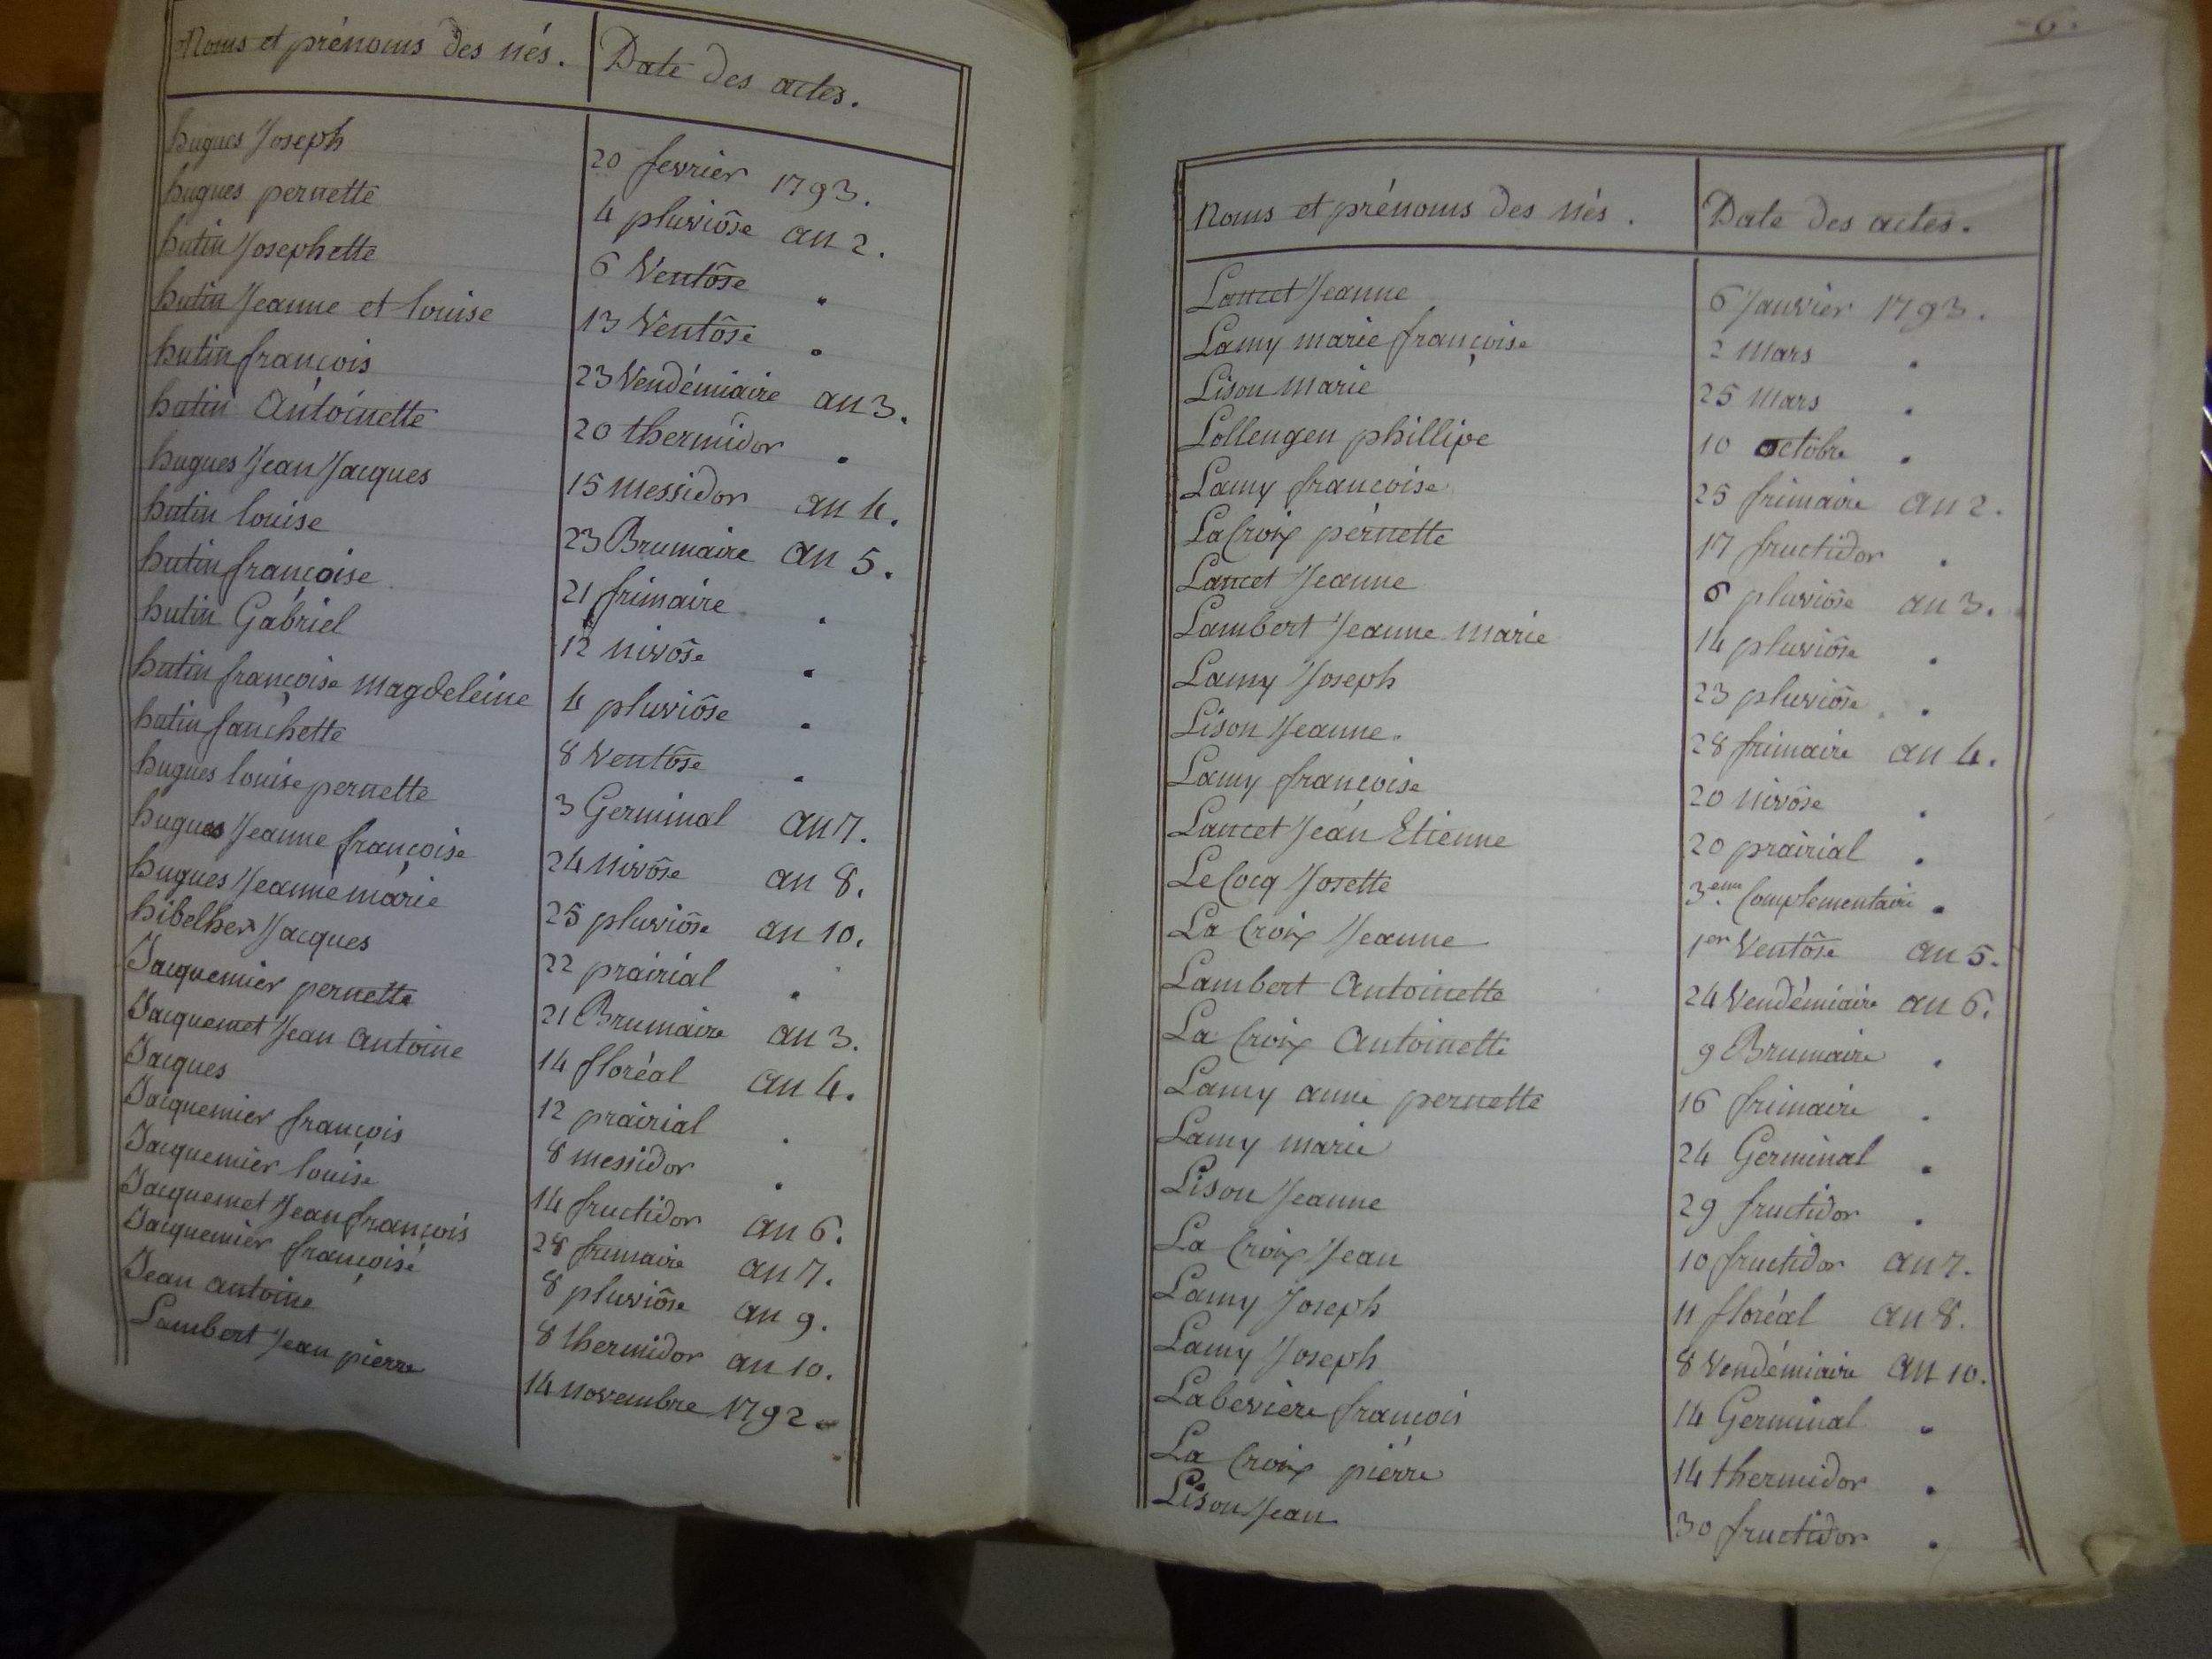 Noms et prénoms des nés. Date des actes.
hugues Joseph 20 fevrier 1793.
hugues pernette 4 pluviôse an 2.
hutin Josephette 6 Ventôse .
hutin Jeanne et louise 13 Ventôse .
hutin françois 23 Vendémiaire an 3.
hutin Antoinette 20 thermidor .
hugues Jean Jacques 15 messidor an 4.
hutin louise 23 Brumaire an 5.
hutin françoise 21 frimaire .
hutin Gabriel 12 nivôse .
hutin françoise magdeleine 4 pluviôse .
hutin fanchette 8 Ventôse .
hugues louise pernette 3 Germinal an 7.
hugues Jeanne françoise 24 nivôse an 8.
hugues Jeanne marie 25 pluviôse an 10.
hibelher Jacques 22 prairial .
Jacquemier pernette 21 Brumaire an 3.
Jacquemet Jean antoine 14 floréal an 4.
Jacques 12 prairial .
Jacquemier françois 8 messidor .
Jacquemier louise 14 fructidor an 6.
Jacquemet Jean françois 28 frimaire an 7.
Jacquemier françoise 8 pluviôse an 9.
Jean antoine 8 thermidor an 10.
Lambert Jean pierre 14 novembre 1792.
6.
Noms et prénoms des nés. Date des actes.
Lancet Jeanne 6 Janvier 1793.
Lamy marie françoise 2 mars .
Lison marie 25 mars .
Lollengen phillipe 10 octobre .
Lamy francoise 25 frimaire an 2.
LaCroix pernette 17 fructidor .
Lancet Jeanne 6 pluviôse an 3.
Lambert Jeanne marie 14 pluviôse .
Lamy Joseph 23 pluviôse .
Lison Jeanne. 28 frimaire an 4.
Lamy françoise 20 nivôse .
Lancet Jean Etienne 20 prairial .
LeCocq Josette 3eme Complementaire .
La Croix Jeanne 1er Ventôse an 5.
Lambert Antoinette 24 Vendémiaire an 6.
La Croix Antoinette 9 Brumaire .
Lamy anne pernette 16 frimaire .
Lamy marie 24 Germinal .
Lison Jeanne 29 fructidor .
La Croix Jean 10 fructidor an 7.
Lamy Joseph 11 floréal an 8.
Lamy Joseph 8 Vendémiaire an 10.
Labeviere francois 14 Germinal .
La Croix pierre 14 thermidor .
Lison Jean 30 fructidor .